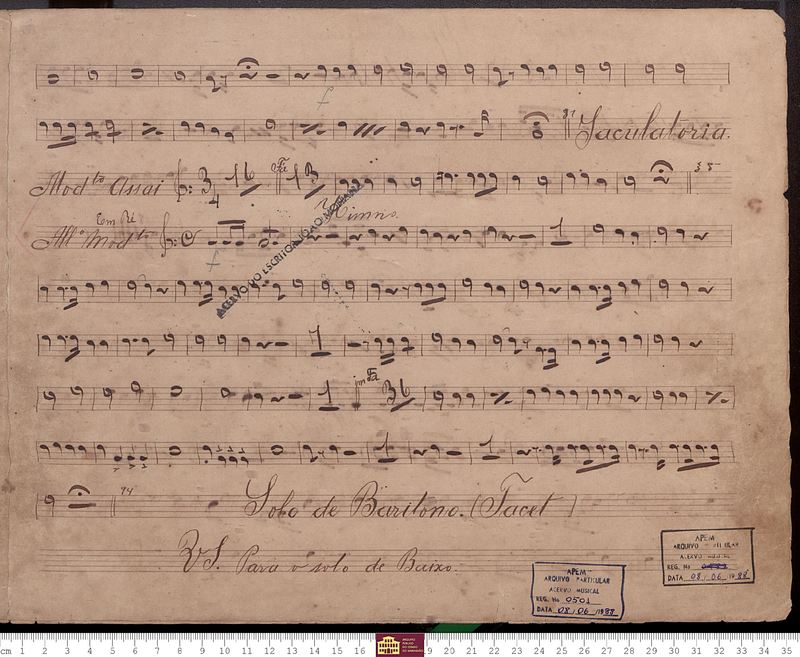 f
87 Jaculatoria.
Mod.to Assai 3 4 16 13 35
Himno.
Em Ré
All.o Mod.to C 1
f
ACERVO DO ESCRITOR JOÃO MOHANA
1
1 36
1 1
94
Solo de Baritono. (Tacet)
VS. Para o solo de Baixo.
APEM
ARQUIVO PARTICULAR
ACERVO MUSICAL
REG. No 0501
DATA 08/06/1988
APEM
ARQUIVO PARTICULAR
ACERVO MUSICAL
REG. No
DATA 08/06/1988
cm 1 2 3 4 5 6 7 8 9 10 11 12 13 14 15 16 17 18 19 20 21 22 23 24 25 26 27 28 29 30 31 32 33 34 35
ARQUIVO PÚBLICO DO ESTADO DO MARANHÃO